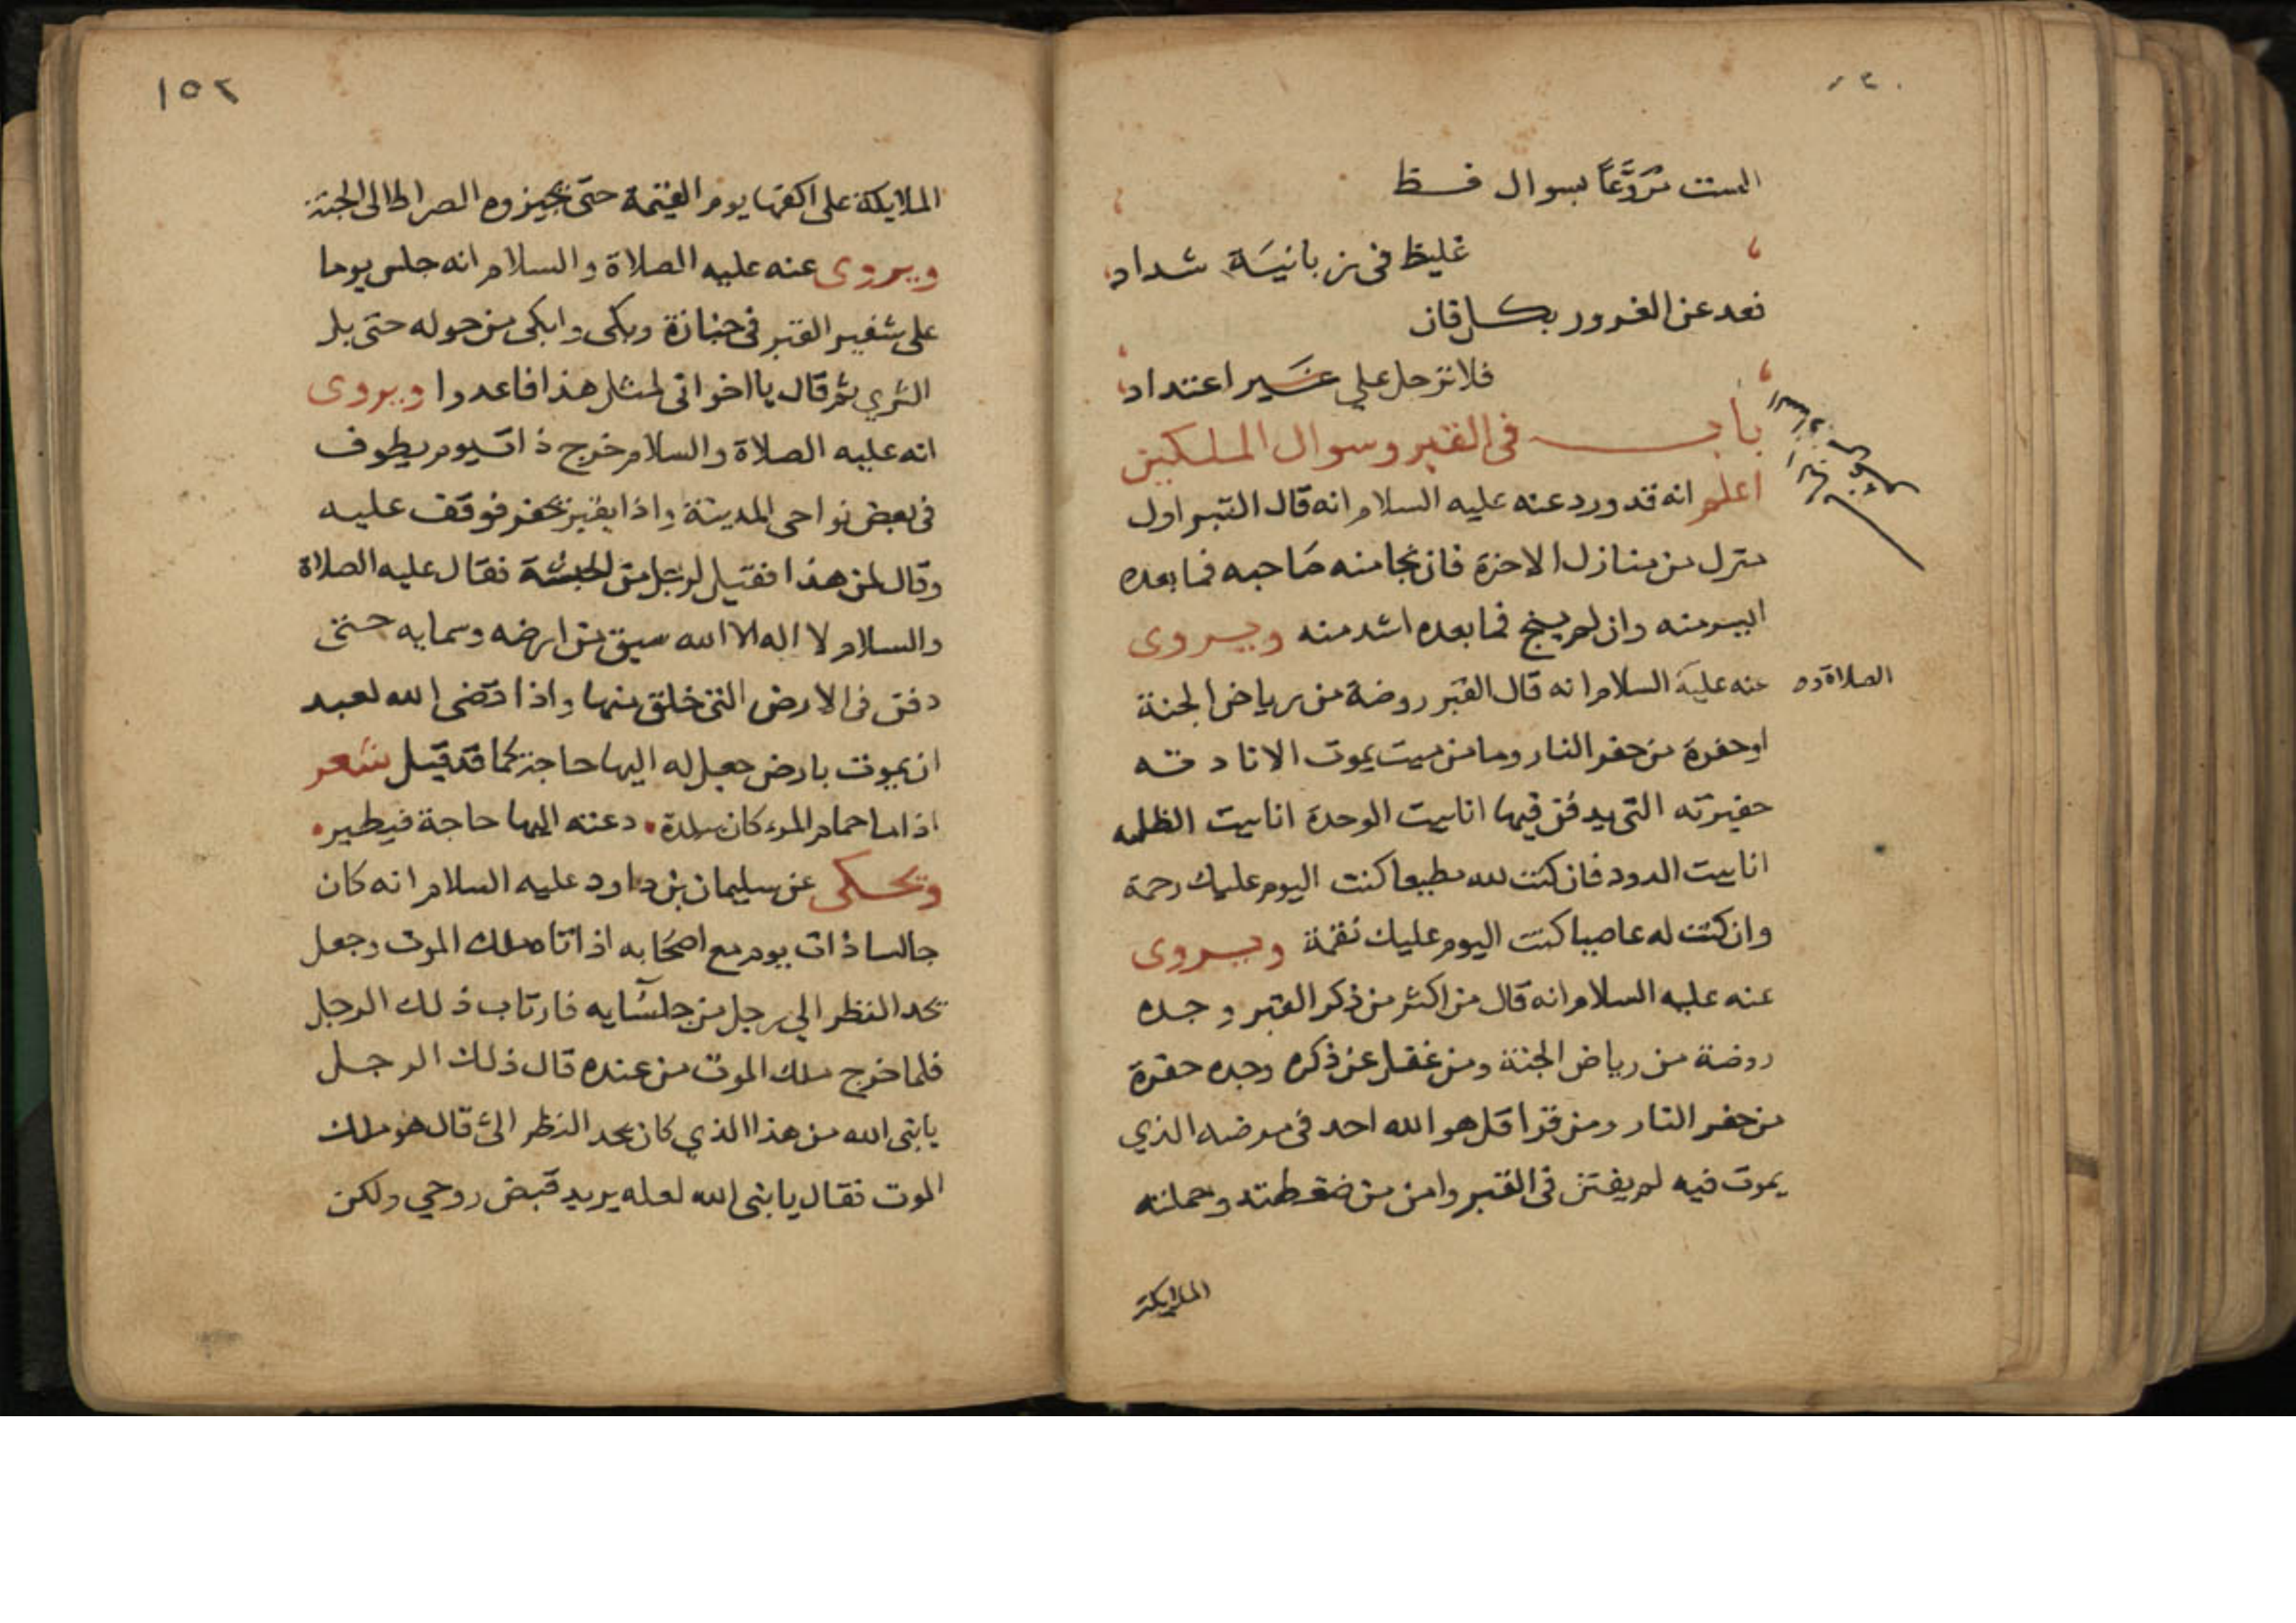 الست مروعا بسوال فظ
غليظ فى زبانية شداد
فعد عن الغرور بكل فان
فلا ترحل على غير اعتداد
باب فى القبر وسوال الملكين
اعلم انه قد ورد عنه عليه السلام انه قال القبر اول
منزل من منازل الاخرة فان نجا منه صاحبه فما بعده
ايسر منه وان لم ينج فما بعده اشد منه ويروى
عنه عليه السلام انه قال القبر روضة من رياض الجنة
الصلاة و
او حفرة من حفر النار وما من ميت يموت الا نادته
حفيرته التى يدفن فيها انا بيت الوحدة انا بيت الظلمه
انا بيت الدود فان كنت لله مطيعا كنت اليوم عليك رحمة
وان كنت له عاصيا كنت اليوم عليك نقمة ويروى
عنه عليه السلام انه قال من اكثر من ذكر القبر وجده
روضة من رياض الجنة ومن غفل عن ذكره وجده حفرة
من حفر النار ومن قرا قل هو الله احد فى مرضه الذي
يموت فيه لم يفتن فى القبر وامن من ضغطته وحملته
الملايكة
١٥٢
الملايكة على اكفها يوم القيمة حتى تجيزوه الصراط الى الجنة
ويروى عنه عليه الصلاة والسلام انه جلس يوما
على شفير القبر فى جنازة وبكى وابكى من حوله حتى بل
الثري ثم قال يا اخوانى لمثل هذا فاعدوا ويروى
انه عليه الصلاة والسلام خرج ذات يوم يطوف
فى بعض نواحى المدينة واذا بقبر يحفر فوقف عليه
وقال لمن هذا فقيل لرجل من الحبشة فقال عليه الصلاة
والسلام لا اله الا الله سيق من ارضه وسمايه حتى
دفن فى الارض التى خلق منها واذا قضى الله لعبد
ان يموت بارض جعل له اليها حاجة كما قد قيل شعر
اذا ما حمام المرء كان ببلدة • دعته اليها حاجة فيطير •
وتحكى عن سليمان بن داود عليه السلام انه كان
جالسا ذات يوم مع اصحابه اذ اتاه ملك الموت وجعل
يحد النظر الي رجل من جلسايه فارتاب ذلك الرجل
فلما خرج ملك الموت من عنده قال ذلك الرجل
يا نبى الله من هذا الذي كان يحد النظر الى قال هو ملك
الموت فقال يا نبى الله لعله يريد قبض روحي ولكن